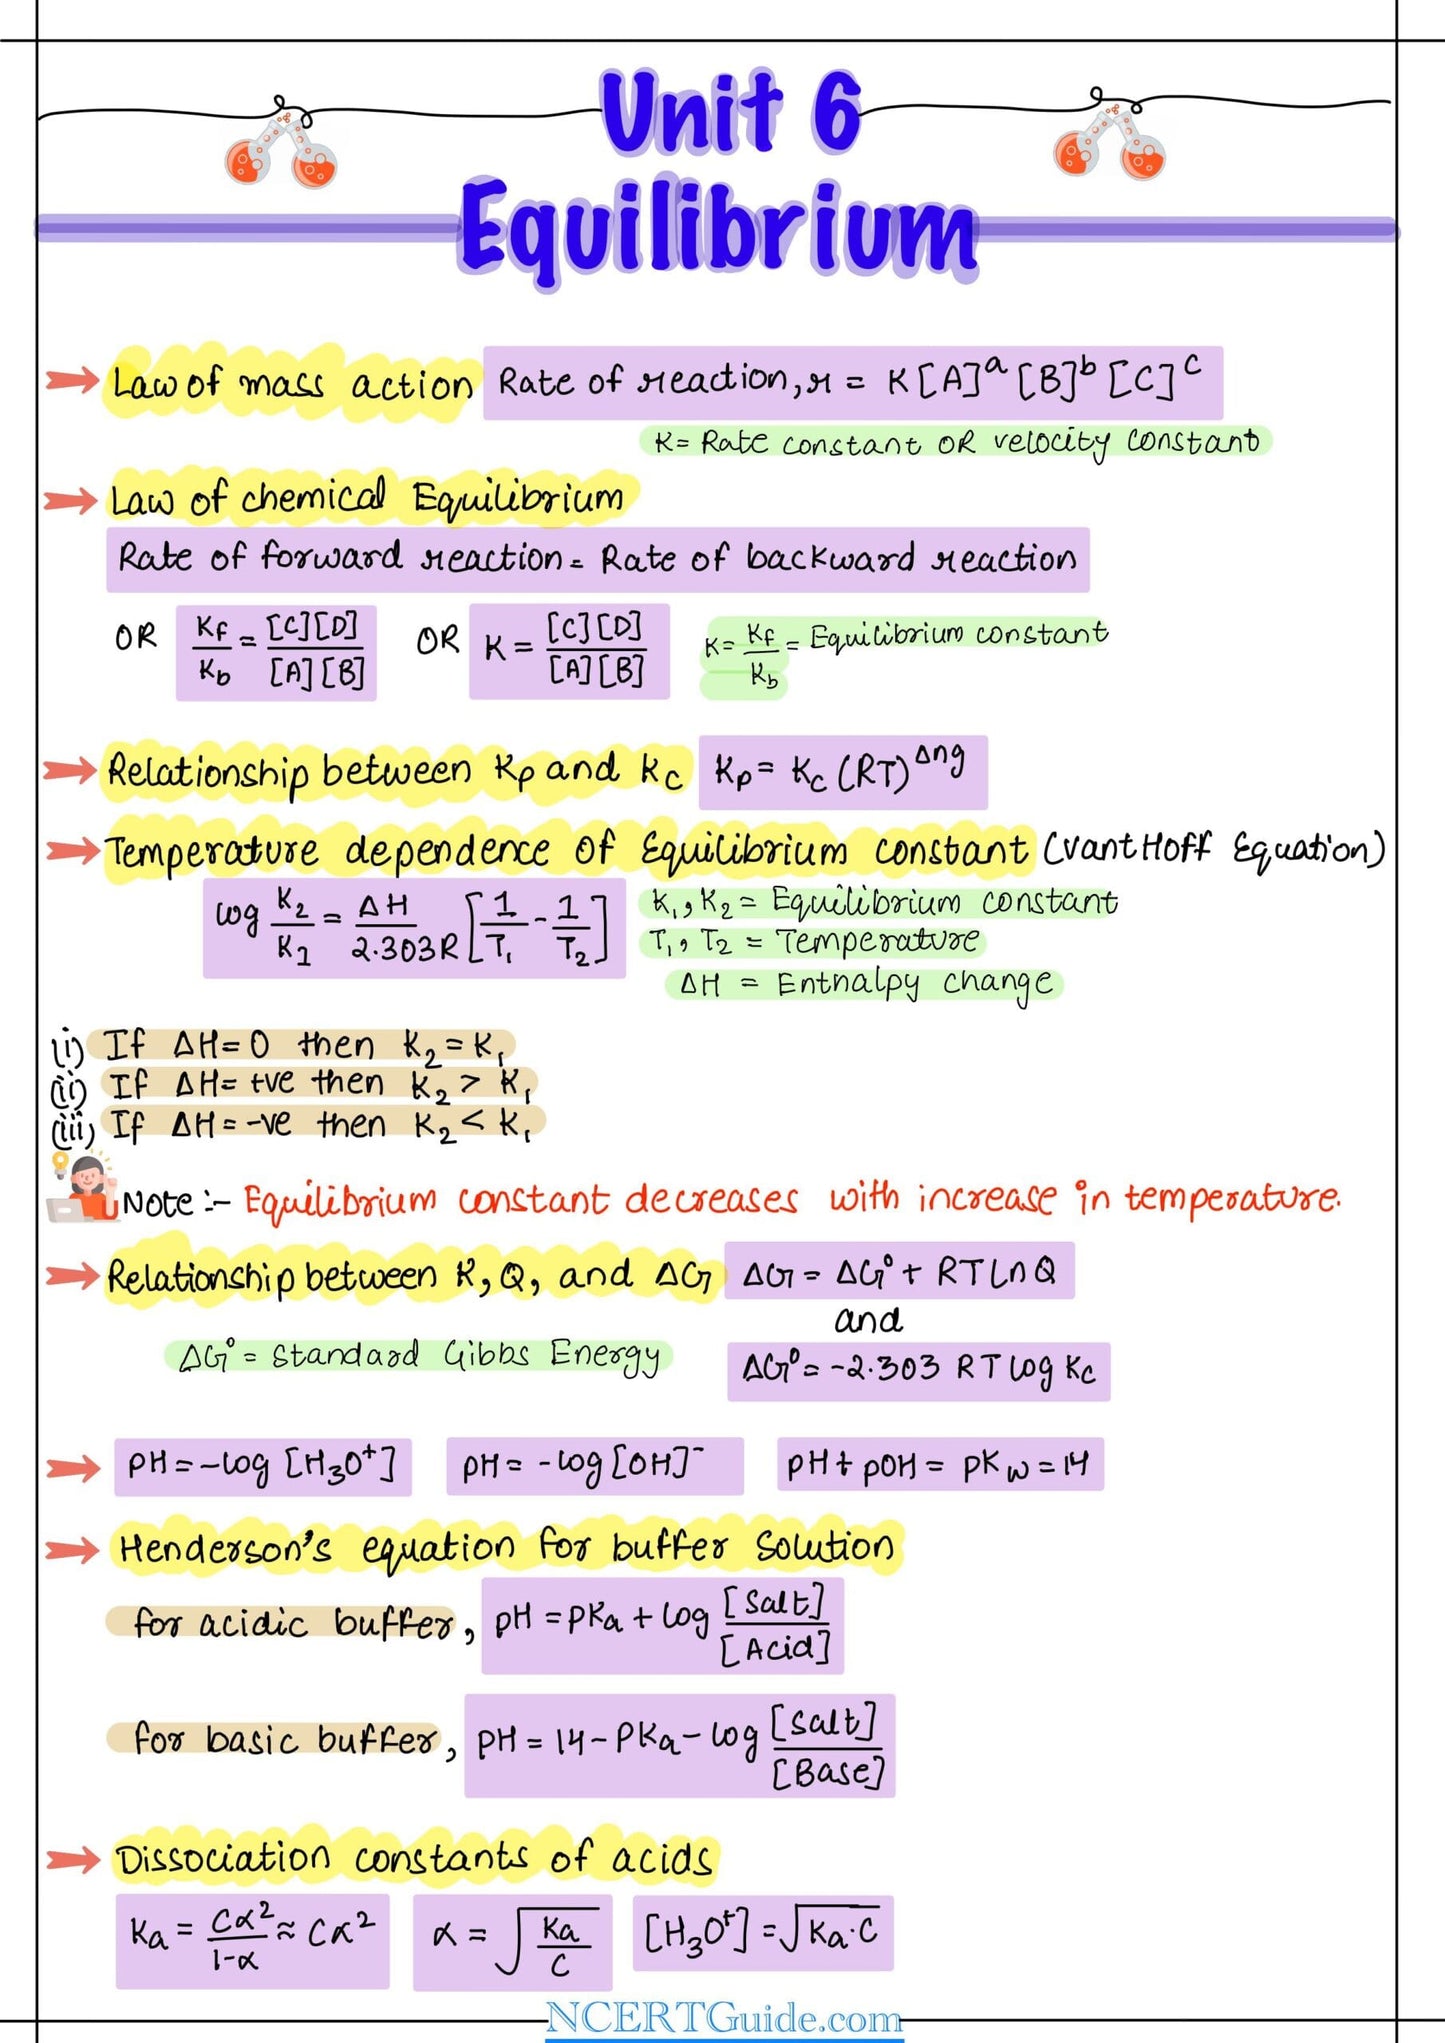 Unit 6
Equilibrium
Law of mass action Rate of reaction, r = K[A]ᵃ[B]ᵇ[C]ᶜ
K= Rate constant OR velocity constant
Law of chemical Equilibrium
Rate of forward reaction = Rate of backward reaction
OR Kf/Kb = [C][D]/[A][B] OR K = [C][D]/[A][B] K= Kf/Kb = Equilibrium constant
Relationship between Kp and Kc Kp = Kc (RT)^Δng
Temperature dependence of Equilibrium constant (Vant Hoff Equation)
log K2/K1 = ΔH/2.303R [1/T1 - 1/T2]
K1, K2 = Equilibrium constant
T1, T2 = Temperature
ΔH = Entnalpy change
(i) If ΔH = 0 then K2 = K1
(ii) If ΔH = +ve then K2 > K1
(iii) If ΔH = -ve then K2 < K1
Note :- Equilibrium constant decreases with increase in temperature.
Relationship between K, Q, and ΔG ΔG = ΔG° + RT Ln Q
and
ΔG° = Standard Gibbs Energy ΔG° = -2.303 RT log Kc
PH = -log [H3O⁺] PH = -log [OH]⁻ PH + POH = PKw = 14
Henderson's equation for buffer solution
for acidic buffer, PH = PKa + log [Salt]/[Acid]
for basic buffer, PH = 14 - PKa - log [Salt]/[Base]
Dissociation constants of acids
Ka = Cα²/1-α ≈ Cα² α = √Ka/C [H3O⁺] = √Ka·C
NCERTGuide.com